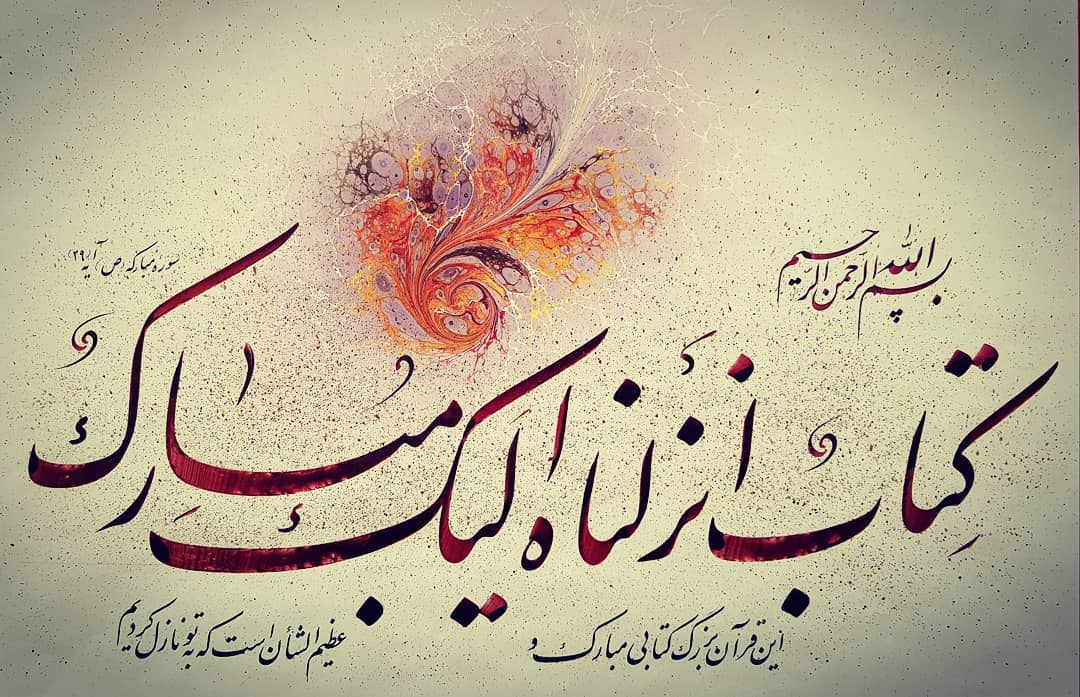 بسم الله الرحمن الرحیم
سوره مبارکه (ص) آیه (۲۹)
کِتابٌ انزلناه الیکَ مبارِکٌ
این قرآن بزرگ کتابی مبارک و
عظیم الشأن است که به تو نازل کردیم